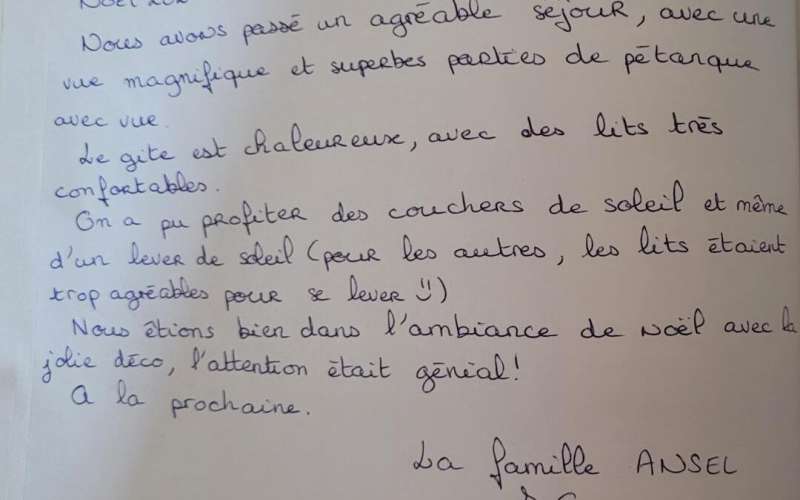 Nous avons passé un agréable sejour, avec une
vue magnifique et superbes parties de pétanque
avec vue.
Le gite est chaleureux, avec des lits très
confortables.
On a pu profiter des couchers de soleil et même
d'un lever de soleil (pour les autres, les lits étaient
trop agréables pour se lever ü)
Nous étions bien dans l'ambiance de Noël avec la
jolie déco, l'attention était génial!
A la prochaine.
La famille ANSEL